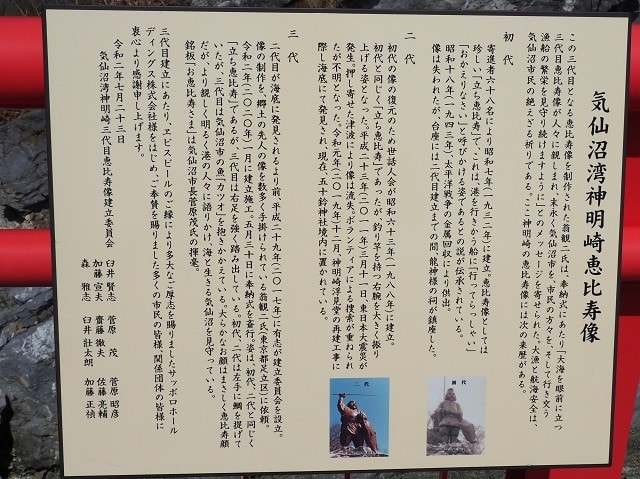 気仙沼湾神明崎恵比寿像
この三代目となる恵比寿像を制作された翁観二氏は、奉納式にあたり「大海を眼前に立つ
三代目恵比寿像が人々に親しまれ、末永く気仙沼市を、市民の方々を、そして行き交う
漁船の繁栄を見守り続けますように」とのメッセージを寄せられた。大漁と航海安全は、
気仙沼市民の絶えざる祈りである。ここ神明崎の恵比寿像には次の来歴がある。
初代
寄進者六十八名により昭和七年(一九三二年)に建立。恵比寿像としては
珍しい「立ち恵比寿」で、これは、港を行きかう船に「行ってらっしゃい」
「おかえりなさい」と呼びかける姿であるとの説が伝承されている。
昭和十八年(一九四三年)、太平洋戦争の金属回収により供出。
像は失われたが、台座には二代目建立までの間、龍神様の祠が鎮座した。
二代
初代の像の復元のため世話人会が昭和六十三年(一九八八年)に建立。
初代と同じく「立ち恵比寿」であったが、釣り竿を持つ右腕を大きく振り
上げた姿となった。平成二十三年(二〇一一年)三月十一日、東日本大震災が
発生。押し寄せた津波により像は流失。ボランティアによる捜索が重ねられ
たが不明となった。令和元年(二〇一九年)十二月、神明崎浮見堂の再建工事に
際し海底にて発見され、現在、五十鈴神社境内に置かれている。
三代
二代目が海底に発見されるより前、平成二十九年(二〇一七年)に有志が建立委員会を設立。
像の制作を、郷土の先人の像を数多く手掛けられている翁観二氏(東京都足立区)に依頼。
令和二年(二〇二〇年)一月に建立施工、五月三十日に奉納式を斎行。姿は、初代、二代と同じく
「立ち恵比寿」であるが、三代目は右足を強く踏み出している。初代、二代は左手に鯛を提げて
いたが、三代目は気仙沼市の魚「カツオ」を抱きかかえている。大らかなお顔はまさしく恵比寿顔
だが、より親しく明るく港の人々に語りかけ、海と生きる気仙沼を見守っている。
銘板「お恵比寿さま」は気仙沼市長菅原茂氏の揮毫。
三代目建立にあたり、ヱビスビールのご縁により多大なご厚志を賜りましたサッポロホール
ディングス株式会社様をはじめ、ご奉賛を賜りました多くの市民の皆様・関係団体の皆様に
衷心より感謝申し上げます。
令和二年七月二十三日
気仙沼湾神明崎三代目恵比寿像建立委員会
臼井賢志 菅原茂 菅原昭彦
加藤宣夫 齋藤徹夫 佐藤亮輔
森雅志 臼井壯太朗 加藤正禎
初代
二代